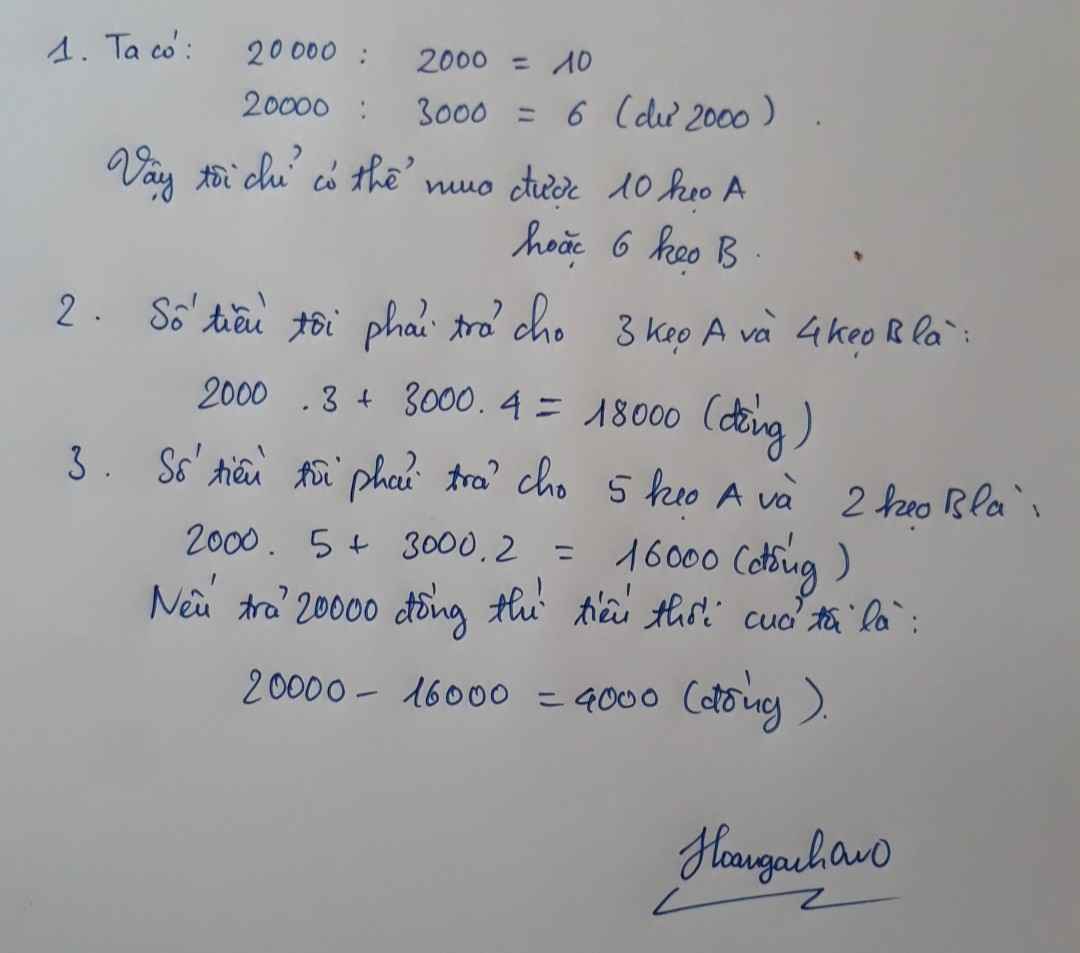 1. Ta có: 20000 : 2000 = 10
20000 : 3000 = 6 (dư 2000).
Vậy tôi chỉ có thể mua được 10 kẹo A
hoặc 6 kẹo B.
2. Số tiền tôi phải trả cho 3 kẹo A và 4 kẹo B là:
2000 . 3 + 3000 . 4 = 18000 (đồng)
3. Số tiền tôi phải trả cho 5 kẹo A và 2 kẹo B là:
2000 . 5 + 3000 . 2 = 16000 (đồng)
Nếu trả 20000 đồng thì tiền thối của tôi là:
20000 - 16000 = 4000 (đồng).